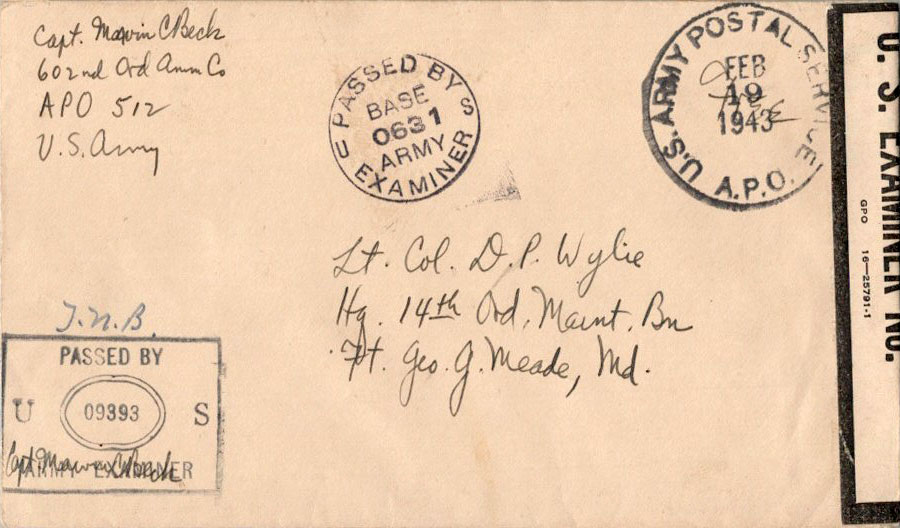 Capt. Marvin C Beck
602nd Ord Amm Co
APO 512
U.S. Army
PASSED BY
BASE
0631
ARMY
U S
EXAMINER
U.S. ARMY POSTAL SERVICE
FEB
19
1943
Free
A.P.O.
Lt. Col. D. P. Wylie
Hq. 14th Ord. Maint. Bn
Ft. Geo. G. Meade, Md.
PASSED BY
U 09393 S
ARMY EXAMINER
Capt Marvin C Beck
U. S. EXAMINER NO.
GPO 16-25791-1